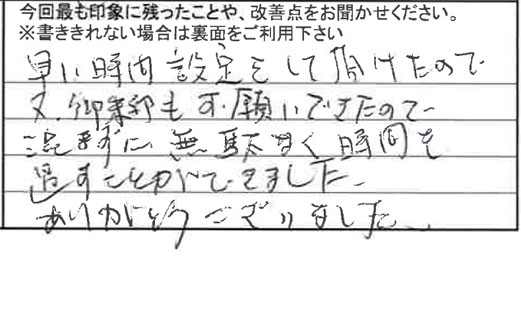 今回最も印象に残ったことや、改善点をお聞かせください。
※書ききれない場合は裏面をご利用下さい
早い時間設定をして頂けたので
又、御来郭もお願いできたので
混まずに無駄なく時間を
過すことができました。
ありがとうございました。